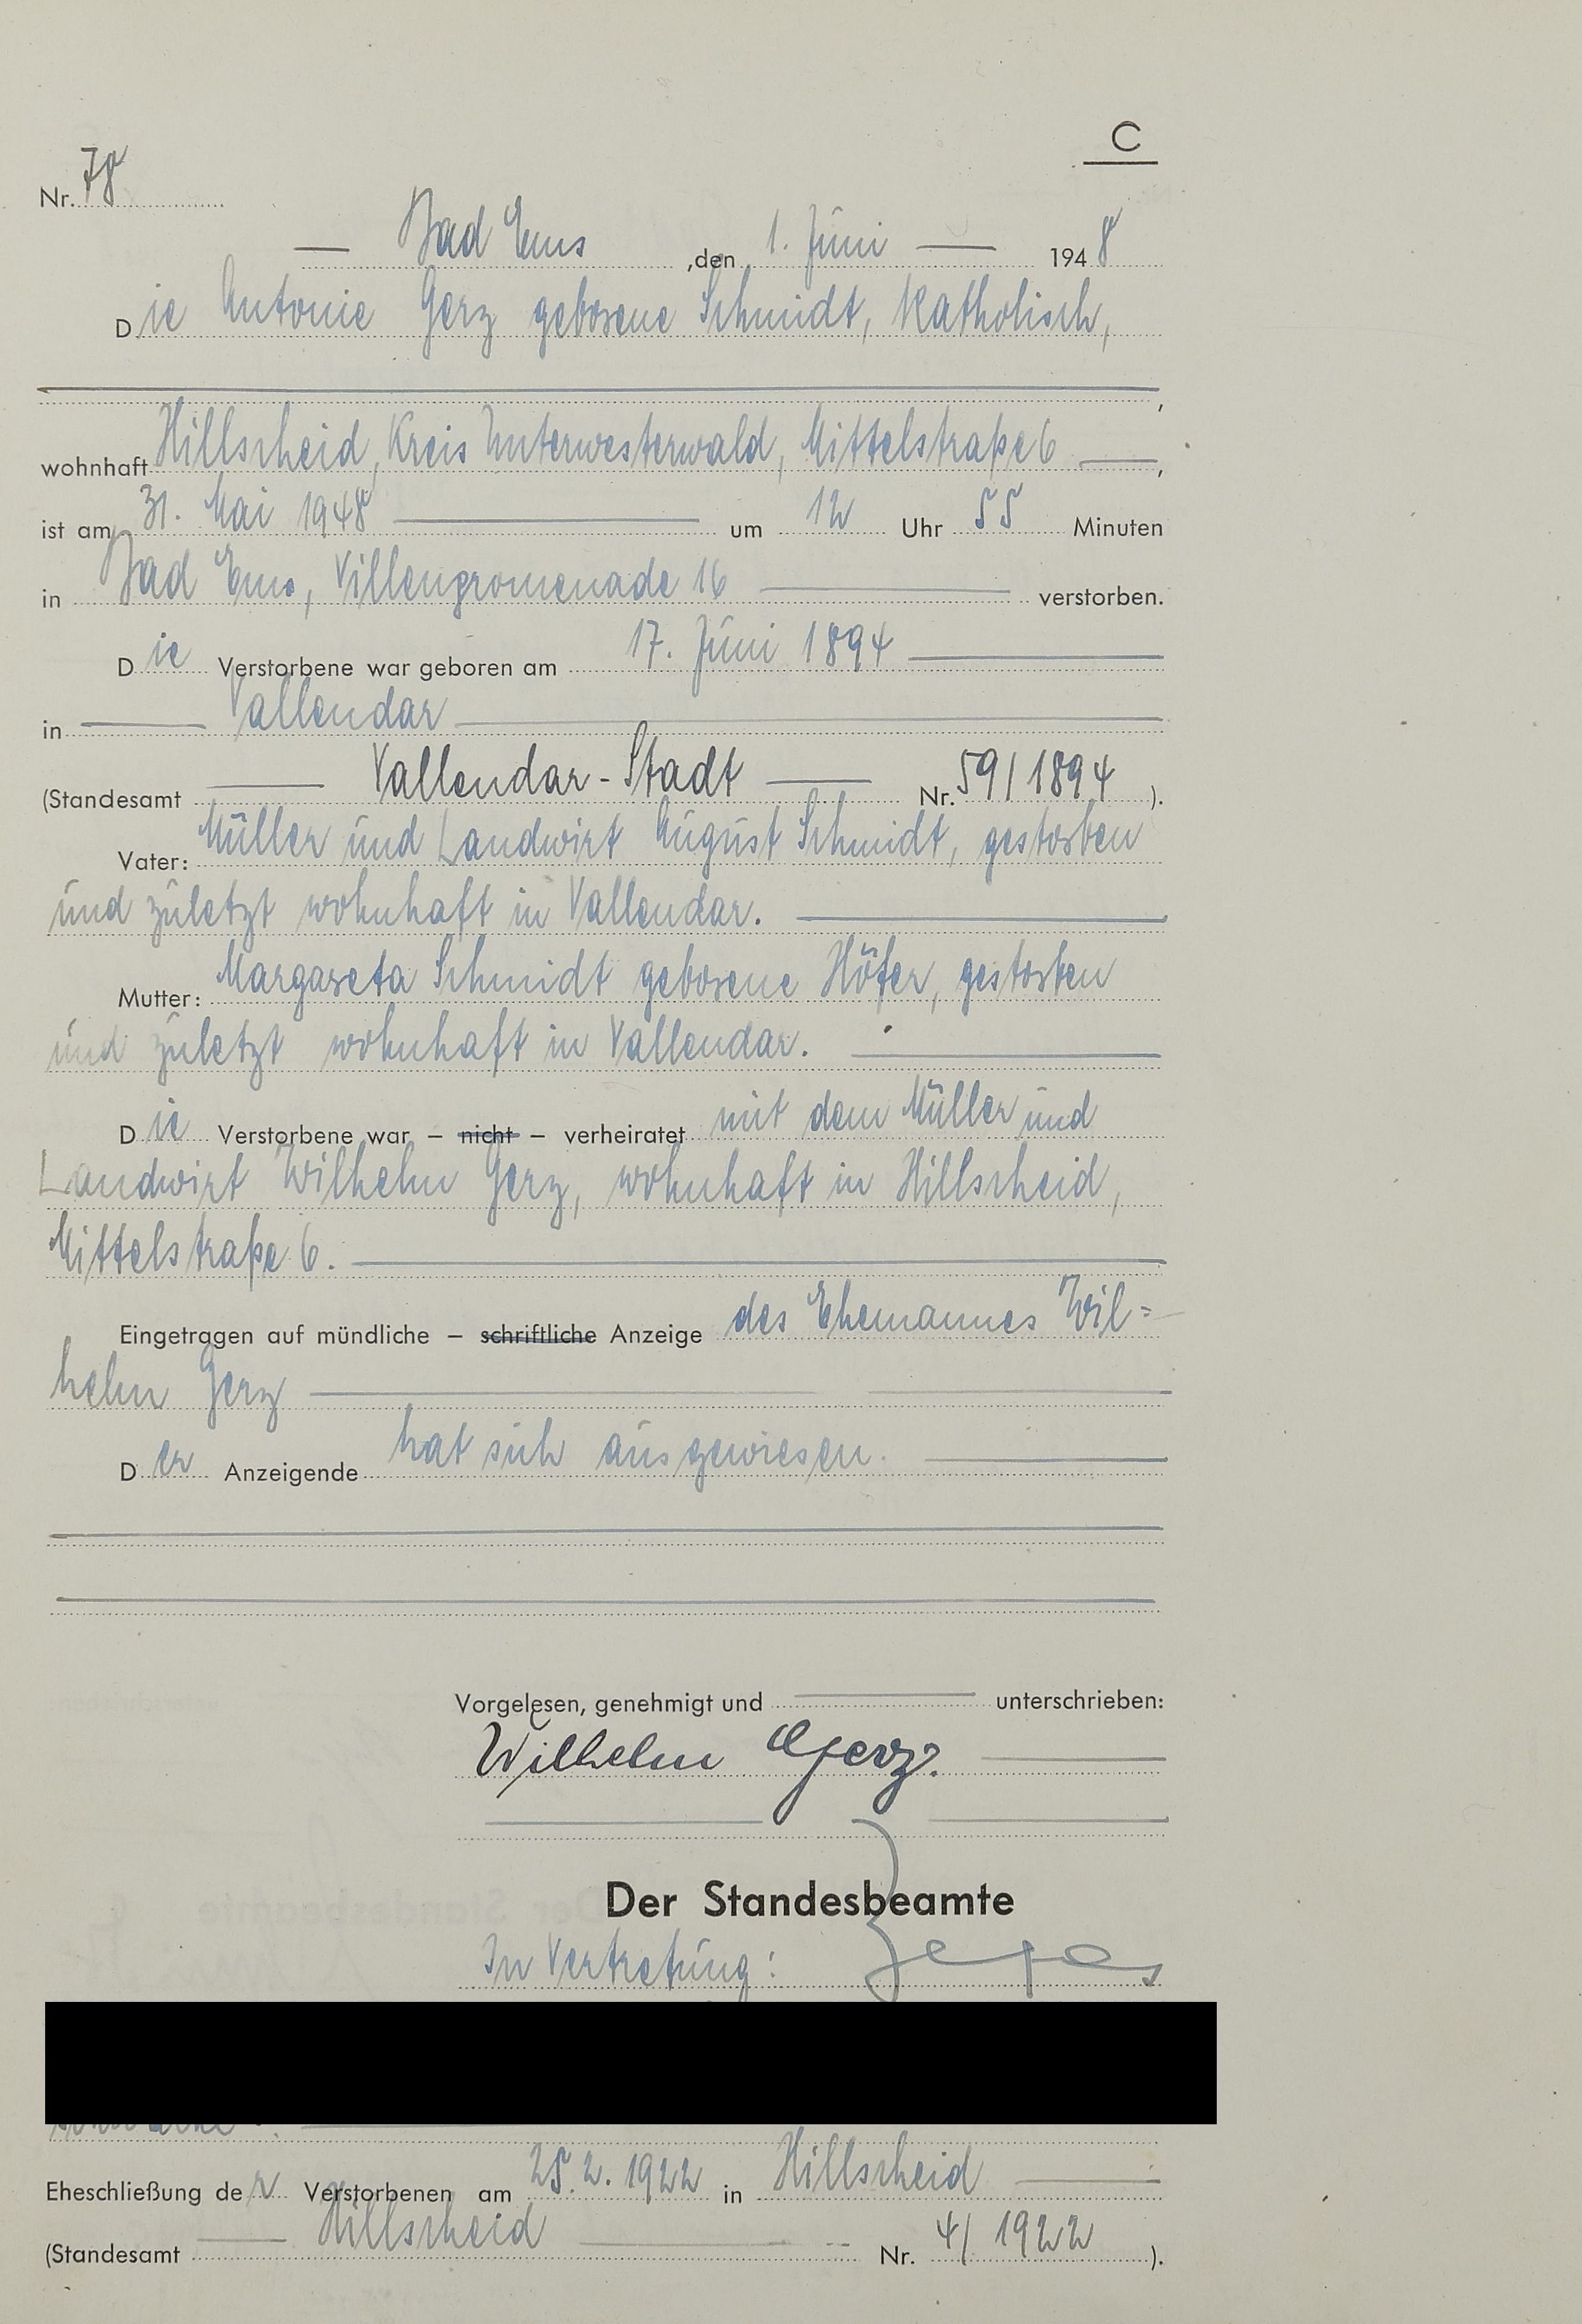 C
Nr. 78
Bad Ems, den 1. Juni 1948
Die Antonie Gerz geborene Schmidt, katholisch,
wohnhaft Hillscheid, Kreis Unterwesterwald, Mittelstraße 6,
ist am 31. Mai 1948 um 12 Uhr 55 Minuten
in Bad Ems, Villenpromenade 16 verstorben.
Die Verstorbene war geboren am 17. Juni 1894
in Vallendar
(Standesamt Vallendar-Stadt Nr. 59/1894).
Vater: Müller und Landwirt August Schmidt, gestorben
und zuletzt wohnhaft in Vallendar.
Mutter: Margareta Schmidt geborene Höfer, gestorben
und zuletzt wohnhaft in Vallendar.
Die Verstorbene war – nicht – verheiratet mit dem Müller und
Landwirt Wilhelm Gerz, wohnhaft in Hillscheid,
Mittelstraße 6.
Eingetragen auf mündliche – schriftliche Anzeige des Ehemannes Wil=
helm Gerz
Der Anzeigende hat sich ausgewiesen.
Vorgelesen, genehmigt und unterschrieben:
Wilhelm Gerz.
Der Standesbeamte
In Vertretung:
Eheschließung der Verstorbenen am 25.2.1922 in Hillscheid
(Standesamt Hillscheid Nr. 4/1922).